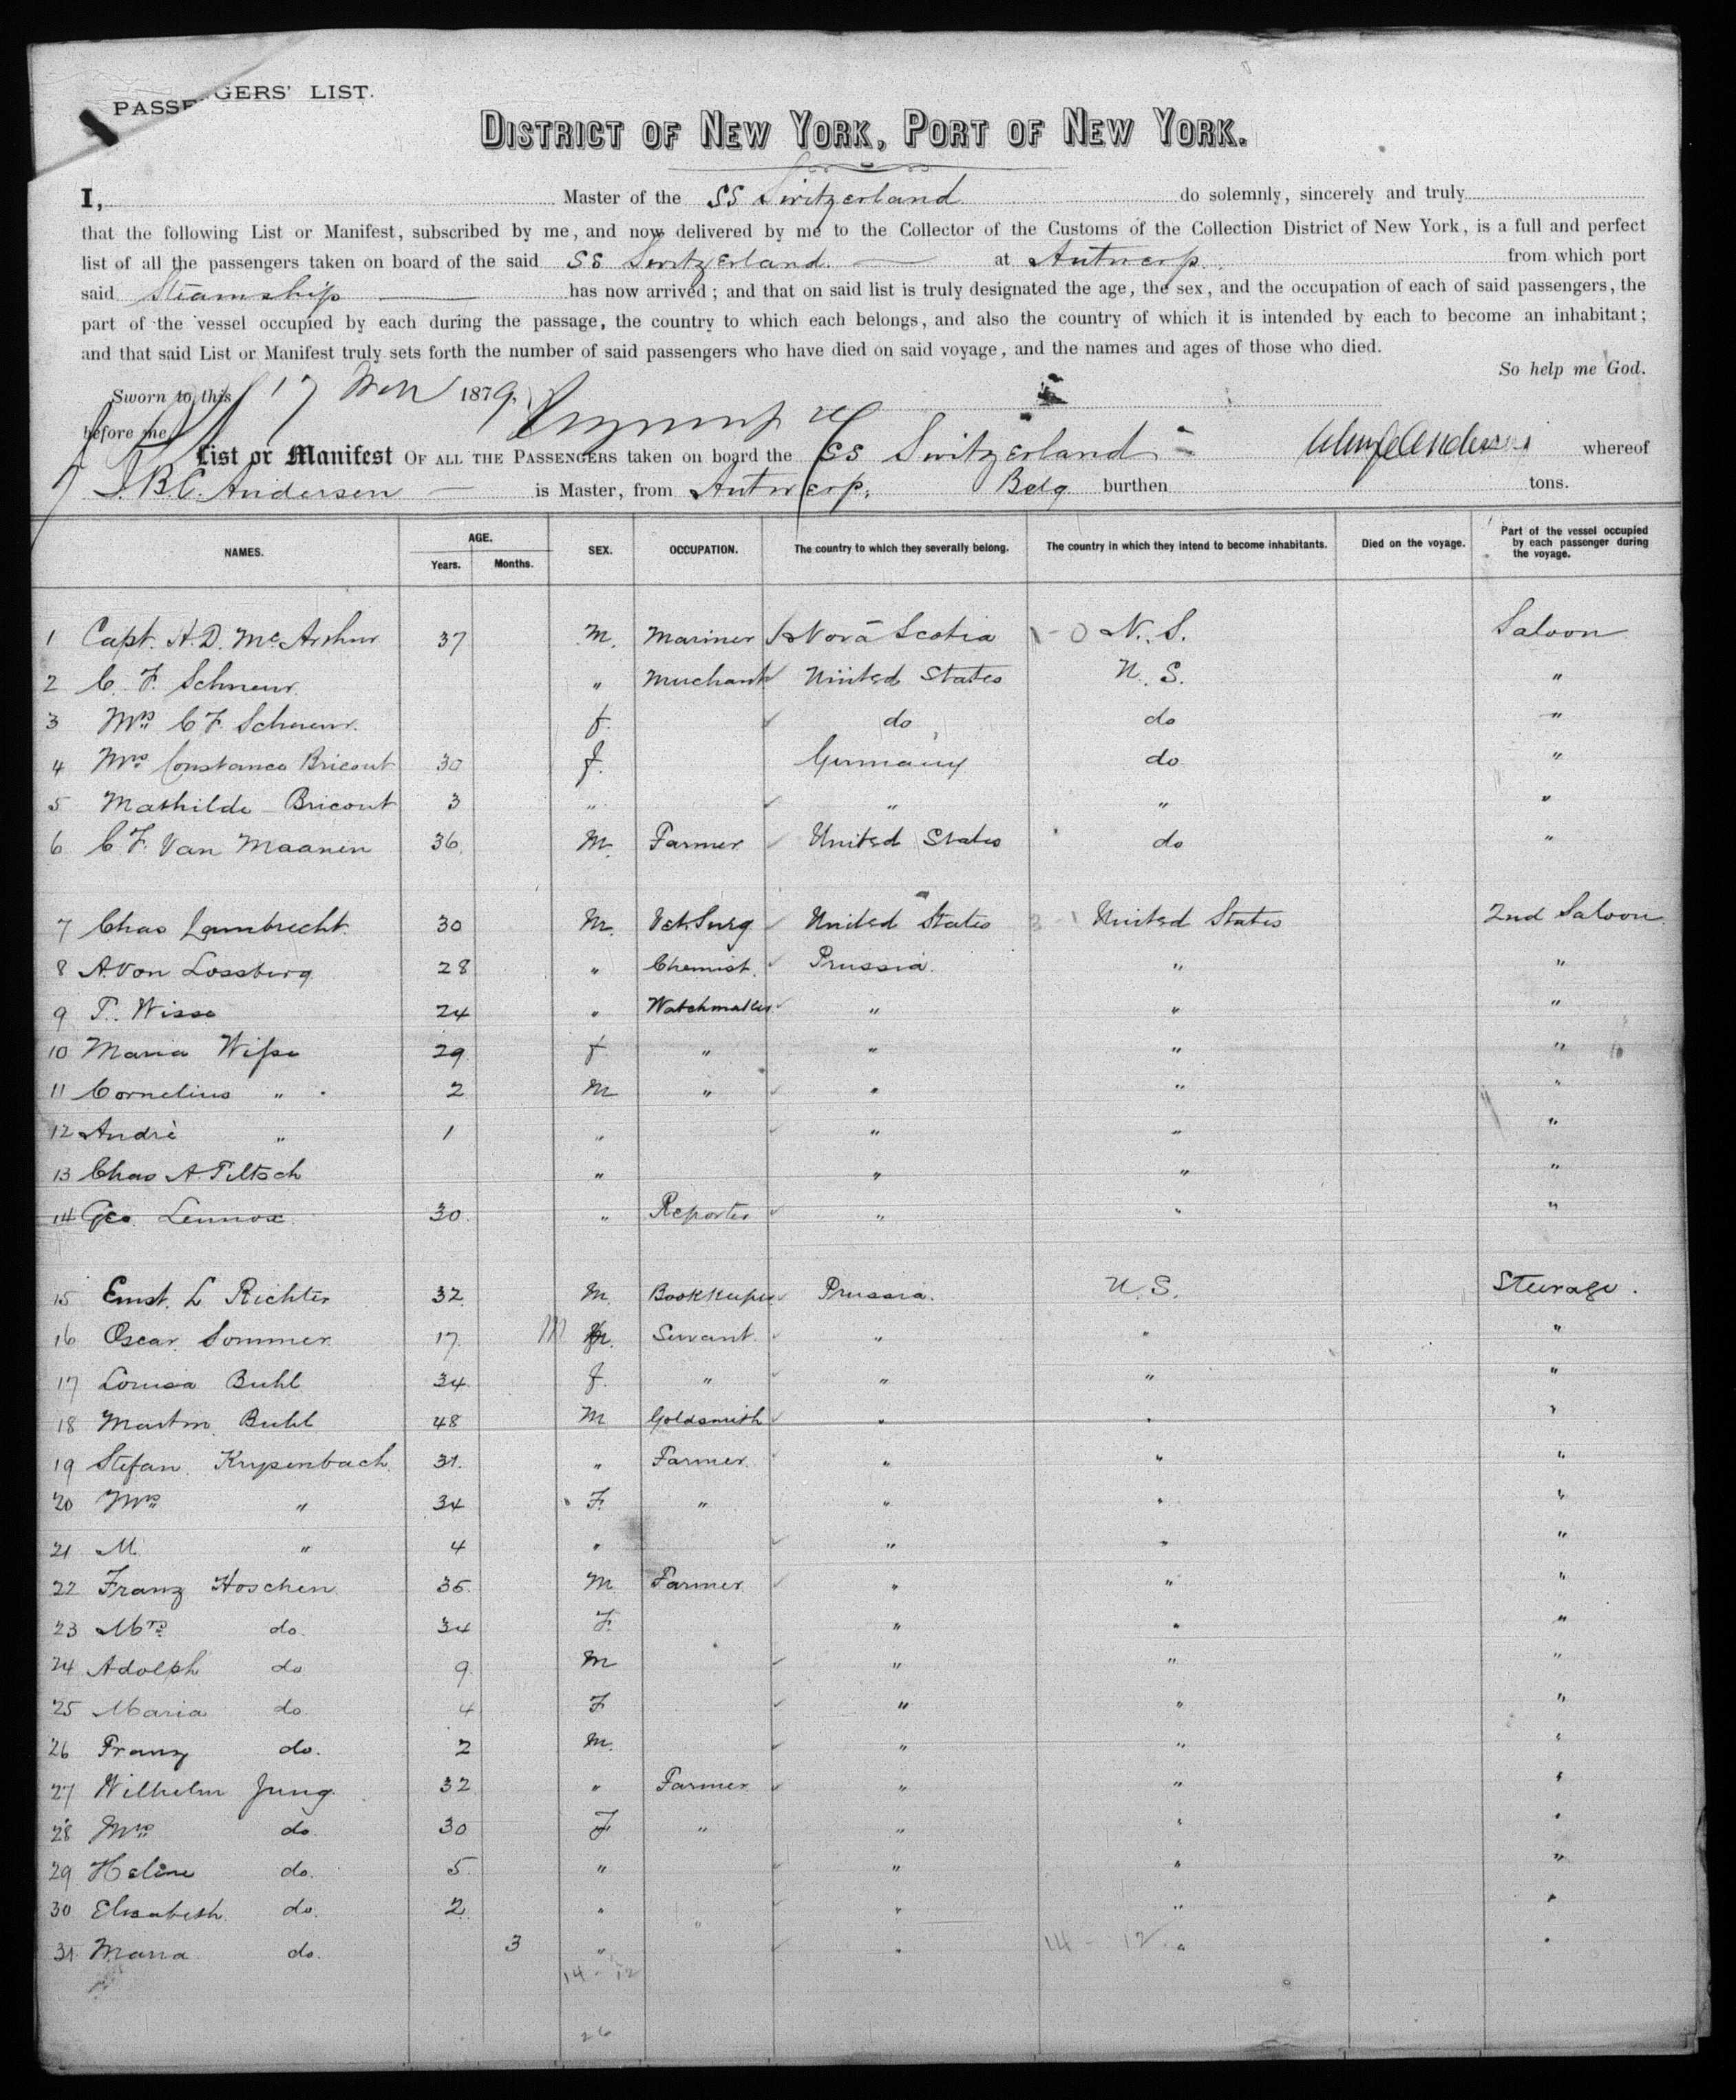 PASSENGERS' LIST.
DISTRICT OF NEW YORK, PORT OF NEW YORK.
I, Master of the SS Switzerland do solemnly, sincerely and truly
that the following List or Manifest, subscribed by me, and now delivered by me to the Collector of the Customs of the Collection District of New York, is a full and perfect
list of all the passengers taken on board of the said SS Switzerland at Antwerp from which port
said Steamship has now arrived; and that on said list is truly designated the age, the sex, and the occupation of each of said passengers, the
part of the vessel occupied by each during the passage, the country to which each belongs, and also the country of which it is intended by each to become an inhabitant;
and that said List or Manifest truly sets forth the number of said passengers who have died on said voyage, and the names and ages of those who died.
So help me God.
Sworn to this 17 Nov 1879.
before me
List or Manifest OF ALL THE PASSENGERS taken on board the SS Switzerland whereof
J. B. C. Andersen is Master, from Antwerp, Belg burthen tons.
NAMES. AGE. Years. Months. SEX. OCCUPATION. The country to which they severally belong. The country in which they intend to become inhabitants. Died on the voyage. Part of the vessel occupied by each passenger during the voyage.
1 Capt. H. D. McArthur 37 M. Mariner Nova Scotia 1-0 N. S. Saloon
2 C. F. " Merchant United States U. S. "
3 Mrs C F f. do do "
4 Mrs Constance Bricout 30 f. Germany do "
5 Mathilde Bricout 3 " " " "
6 C F. Van Maanen 36 M. Farmer United States do "
7 Chas Lambrecht 30 M. Vet. Surg United States 3-1 United States 2nd Saloon
8 A Von Lossberg 28 " Chemist. Prussia. " "
9 P. Wisse 24 " Watchmaker " " "
10 Maria Wisse 29 f " " " "
11 Cornelius " 2 M " " " "
12 Andrè " 1 " " " "
13 Chas A. Piltsch " " " "
14 Geo. Lennox 30. " Reporter " " "
15 Ernst. L Richter 32. M. Bookkeeper Prussia. U. S. Steerage.
16 Oscar Sommer 17. M Servant " " "
17 Louisa Buhl 34 f. " " " "
18 Martin Buhl 48 M Goldsmith " " "
19 Stefan Krypenbach 31. " Farmer " " "
20 Mrs " 34 F. " " " "
21 M. " 4 " " " "
22 Franz Hoschen 35. M Farmer " " "
23 Mrs do. 34 F. " " "
24 Adolph do 9 M " " "
25 Maria do. 4 F " " "
26 Franz do. 2 M. " " "
27 Wilhelm Jung 32 " Farmer " " "
28 Mrs do 30 F " " " "
29 Heline do. 5. " " " "
30 Elisabeth do. 2 " " " " "
31 Maria do. 3 " " 14 - 12 " "
14 - 12
26